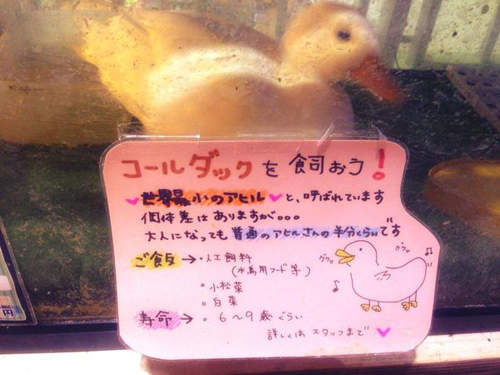 コールダックを飼おう！
♥世界最小のアヒル♥と、呼ばれています
個体差はありますが。。。
大人になっても普通のアヒルさんの半分くらいです
ご飯→・人工飼料
(水鳥用フード等)
・小松菜
・白菜
寿命→・6〜9歳ぐらい
詳しくはスタッフまで♥
グワッ
グワッ
円